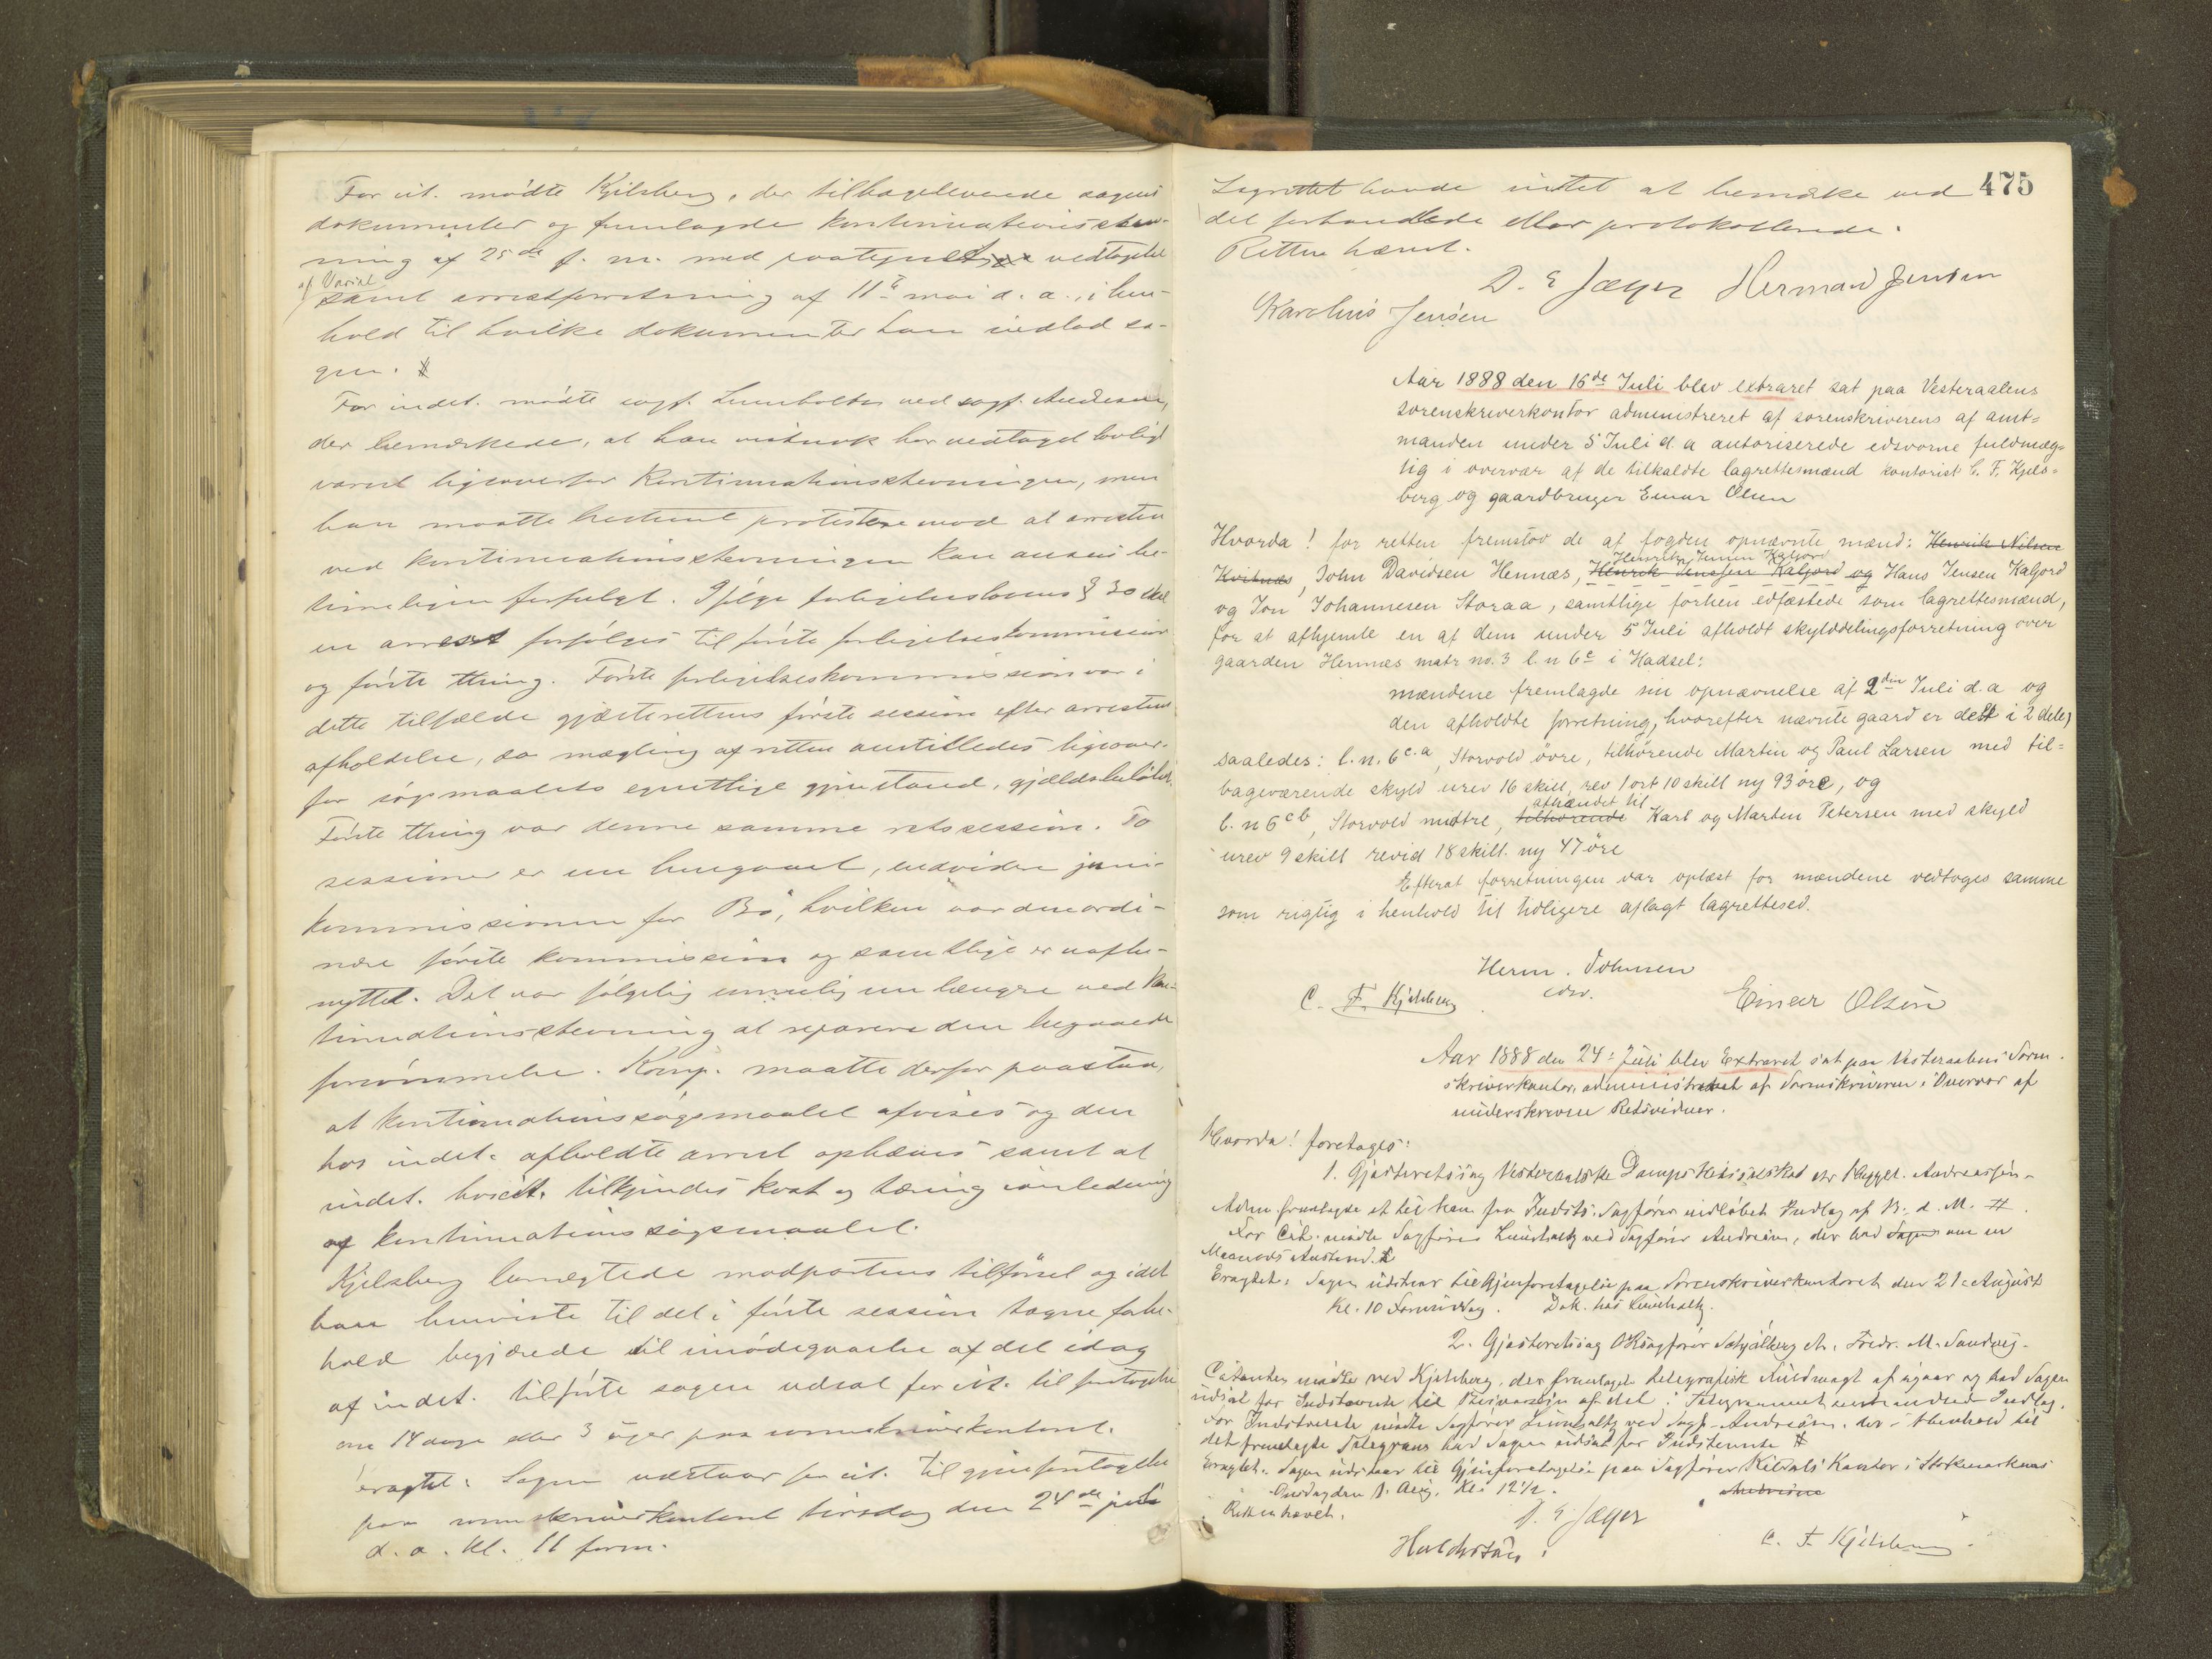 For cit. mødte Kjelsberg, der tilbageleverede sagens
dokumenter og fremlagde kontinuationsstev-
ning af 25de f. m. med paategnet vedtagelse
af Varsel
samt arrestforretning af 11te mai d. a., i hen-
hold til hvilke dokumenter han indlod sa-
gen. #
For indst. mødte sagf. Lumholtz ved sagf. Andresen,
der bemærkede, at han vistnok har vedtaget lovligt
varsel ligeoverfor kontinuationsstevningen, men
han maatte bestemt protestere mod at arresten
ved kontinuationsstevningen kan ansees be-
timeligen forfulgt. Ifølge forligelseslovens § 30 skal
en arrest forfølges til første forligelseskommission
og første thing. Første forligelseskommission var i
dette tilfælde gjæsterettens første session efter arrestens
afholdelse, da mægling af retten anstilledes ligeover-
for søgsmaalets egentlige gjenstand, gjældsbeløbet.
Første thing var denne samme retssession. To
sessioner er nu hengaaet, endvidere juni-
kommissionen for Bø, hvilken var den ordi-
nære første kommission og samtlige er uafbe-
nyttet. Det var følgelig umulig nu længere ved kon-
tinuationsstevning at reparere den begaaede
forsømmelse. Komp. maatte derfor paastaa,
at kontinuationssøgsmaalet afvises og den
hos indst. afholdte arrest ophæves samt at
indst. hos cit. tilkjendes kost og tæring i anledning
af kontinuationssøgsmaalet.
Kjelsberg benegtede modpartens tilførsel og idet
han henviste til det i første session tagne forbe-
hold begjærede til imødegaaelse af det idag
af indst. tilførte sagen udsat for cit. til foretagelse
om 14 dage eller 3 uger paa sorenskriverkontoret.
Eragtet: Sagen udstaar for cit. til gjenforetagelse
paa sorenskriverkontoret tirsdag den 24de juli
d. a. kl. 11 form.
475
Lagrettet havde intet at bemærke ved
det forhandlede eller protokollerede.
Retten hævet.
D. E Jæger Herman Jensen
Karolius Jensen
Aar 1888 den 16de Juli blev extraret sat paa Vesteraalens
sorenskriverkontor administreret af sorenskriverens af amt=
manden under 5 Juli d. a autoriserede edsvorne fuldmæg=
tig i overvær af de tilkaldte lagrettesmænd kontorist C. F. Kjels=
berg og gaardbruger Einar Olsen
Hvorda! for retten fremstod de af fogden opnævnte mænd: Henrik Nilsen
Henrik Jensen Kaljord
Kvitnæs, John Davidsen Hennæs, Henrik Jensen Kaljord og Hans Jensen Kaljord
og Jon Johannesen Storaa, samtlige forhen edfæstede som lagrettesmænd,
for at afhjemle en af dem under 5 Juli afholdt skylddelingsforretning over
gaarden Hennæs matr no. 3 l. n 6c i Hadsel:
mændene fremlagde sin opnævnelse af 2den Juli d. a og
den afholdte forretning, hvorefter nævnte gaard er delt i 2 dele,
saaledes: l. n. 6c.a, Storvold øvre, tilhørende Martin og Paul Larsen med til=
bageværende skyld urev 16 skill, rev 1 ort 10 skill ny 93 øre, og
afhændet til
l. n 6cb, Storvold nedre, tilhørende Karl og Marten Petersen med skyld
urev 9 skill revid 18 skill. ny 47 øre
Efterat forretningen var oplæst for mændene vedtoges samme
som rigtig i henhold til tidligere aflagt lagrettesed.
Herm. Johnsen
edsv.
C. F. Kjelsberg
Einar Olsen
Aar 1888 den 24: Juli blev Extraret sat paa Vesteraalens Soren-
skriverkontor, administreret af Sorenskriveren i Overvær af
underskrevne Retsvidner.
Hvorda! foretages:
1. Gjæsteretssag Vesteraalske Dampskibsselskab ctr Andreassen.
Adm. fremlagde et til ham fra Indsts. Sagfører indløbet Indlæg af d. M. #.
For Cit. mødte Sagfører Lumholtz ved Sagfører Andresen, der bad Sagen om en
Maaneds Anstand. #
Eragtet: Sagen udstaar til Gjenforetagelse paa Sorenskriverkontoret den 21: August
Kl. 10 Formiddag. Dok. hos Lumholtz.
2. Gjæsteretssag ORsagfører Schjølberg ctr. Fredr. M. Sandvig.
Citanten mødte ved Kjelsberg, der fremlagde telegrafisk Fuldmagt af igaar og bad Sagen
udsat for Indstevnte til Besvarelse af det i Telegrammet Indlæg.
For Indstevnte mødte Sagfører Lumholtz ved Sagf. Andresen, der i Henhold til
det fremlagte Telegram bad Sagen udsat for Indstevnte #
Eragtet: Sagen udstaar til Gjenforetagelse paa Sagfører Kildals Kontor i Stokmarknæs
Onsdag den 1. Aug. Kl. 12 1/2.
Retten hævet.
D. E Jæger
C. F Kjelsberg